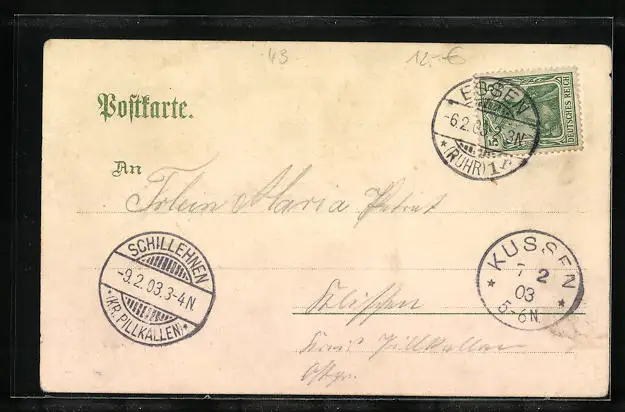 43
12.-€
Postkarte.
ESSEN
-6.2.03.3-N.
*(RUHR)1*
5
DEUTSCHES REICH
An
Frlein Maria
SCHILLEHNEN
-9.2.03.3-4N.
*(KR. PILLKALLEN)*
* KUSSEN *
7 2
03
5-6N.
Kreis Pillkallen
Ostpr.